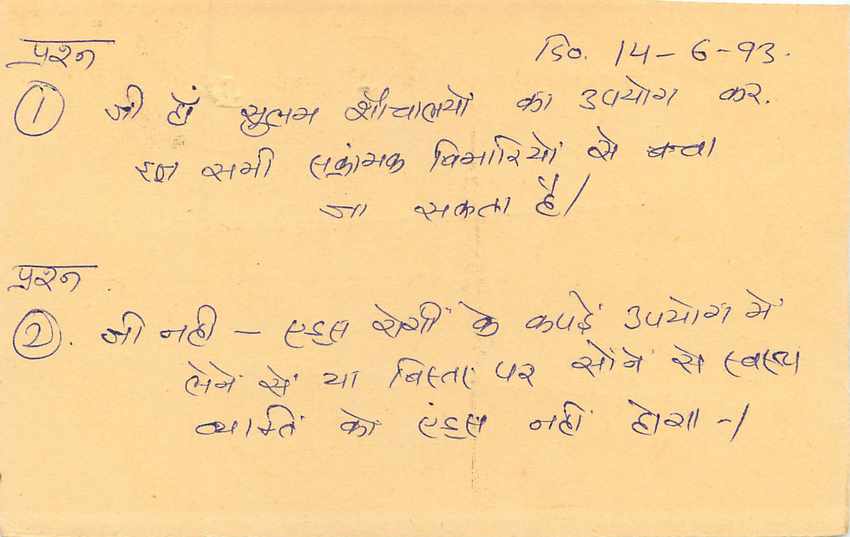 प्रश्न
दि० 14-6-93.
① जी हाँ सुलभ शौचालयों का उपयोग कर.
इन सभी संक्रामक बिमारियों से बचा
जा सकता है।
प्रश्न
②. जी नही - एड्स रोगीं के कपड़ें उपयोग में
लेनें सें या बिस्तर पर सोंनें से स्वस्थ
व्यक्तिं को एंड्स नहीं होगा -।